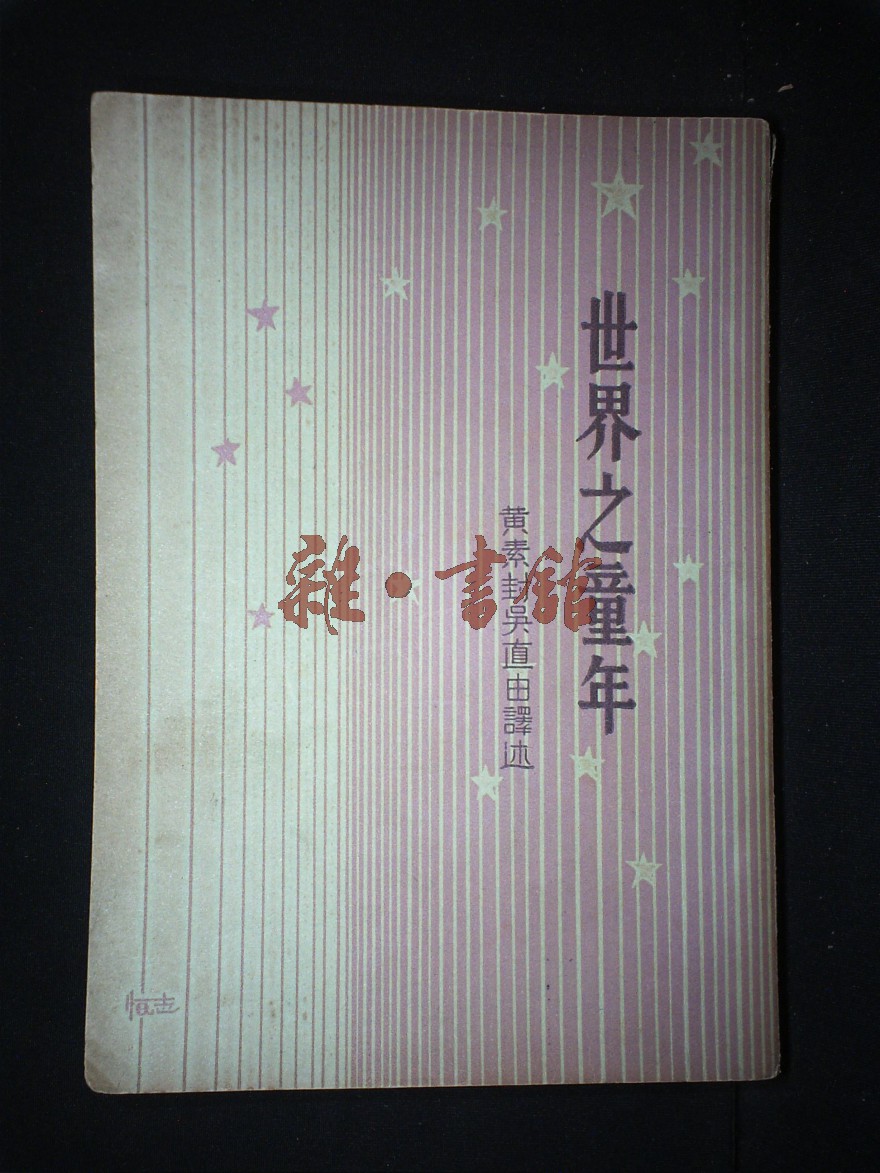 世界之童年
黄素封吳直由譯述
雜·書館